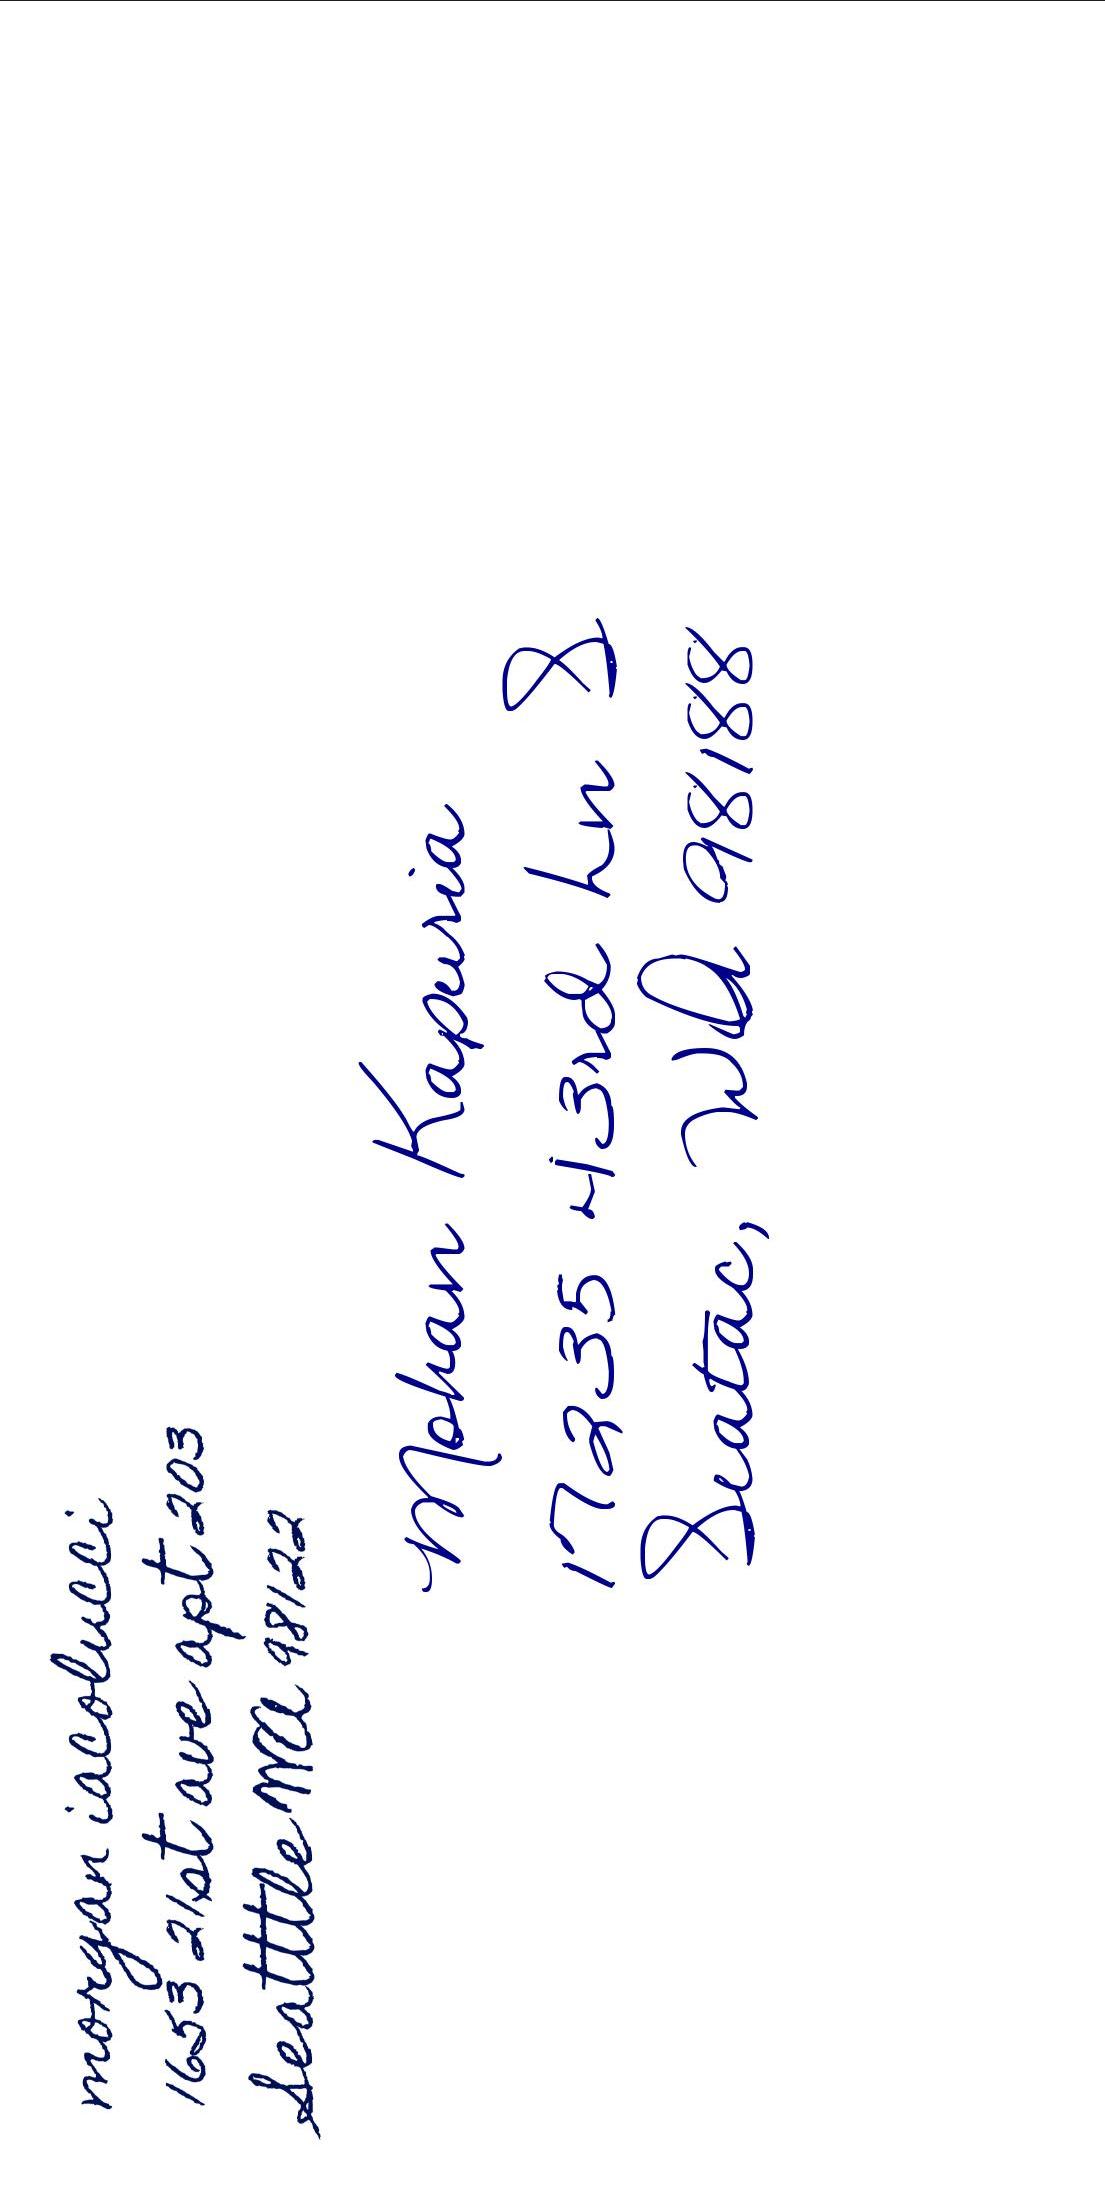 morgan iacolucci
1653 21st ave apt 203
Seatttle WA 98122
Mohan Kapuria
17235 43rd Ln S
Seatac, WA 98188